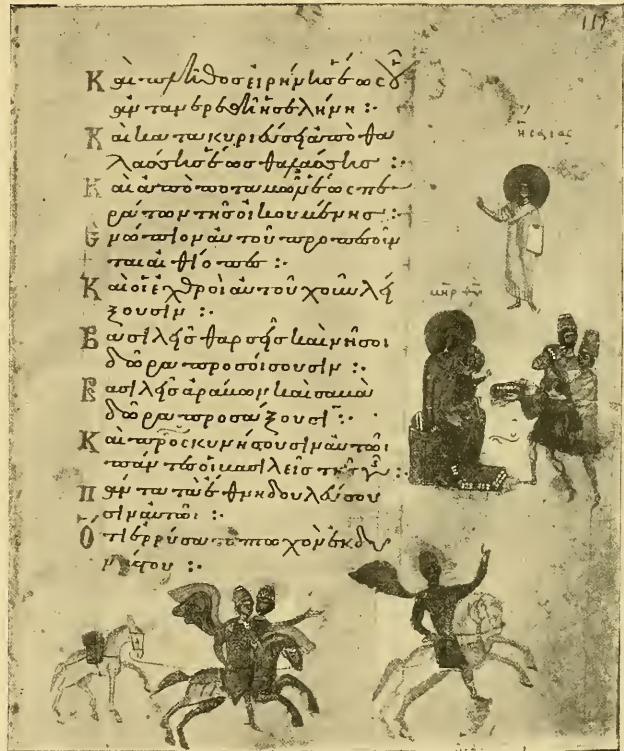 Καὶ πλῆθος εἰρήνης ἕως οὗ
ἀνταναιρεθῆ ἡ σελήνη :·
Καὶ κατακυριεύσει ἀπὸ θα
λάσσης ἕως θαλάσσης :·
Καὶ ἀπὸ ποταμῶν ἕως πε
ράτων τῆς οἰκουμένης :·
Ἐνώπιον αὐτοῦ προπεσοῦν
ται αἰθίοπες :·
Καὶ οἱ ἐχθροὶ αὐτοῦ χοῦν λεί
ξουσιν :·
Βασιλεῖς θαρσεῖς καὶ νῆσοι
δῶρα προσοίσουσιν :·
Βασιλεῖς ἀράβων καὶ σαβὰ
δῶρα προσάξουσι :·
Καὶ προσκυνήσουσιν αὐτῶι
πάντες οἱ βασιλεῖς τῆς γῆς :·
Πάντα τὰ ἔθνη δουλεύσου
σιν αὐτῶι :·
Ὅτι ἐρρύσατο πτωχὸν ἐκ δυ
νάστου :·
ἡσαίας
μηρ θυ